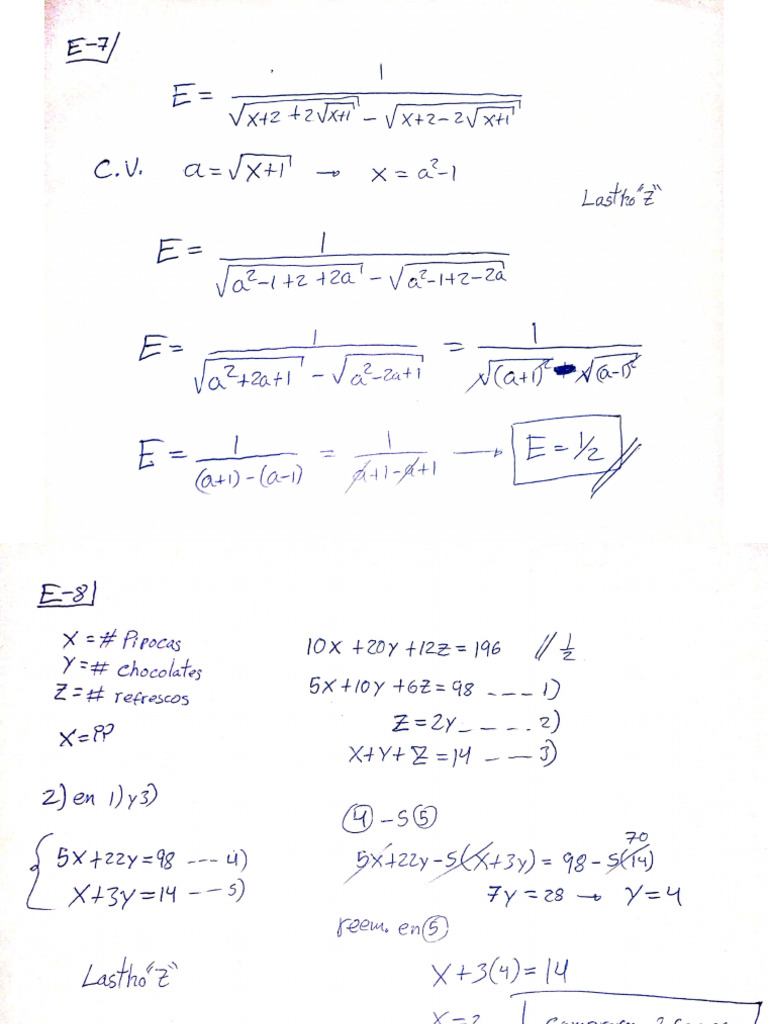 E-7
E = 1 / (√(x+2+2√(x+1)) - √(x+2-2√(x+1)))
C.V. a = √(x+1) → x = a²-1
Lastho "Z"
E = 1 / (√(a²-1+2+2a) - √(a²-1+2-2a))
E = 1 / (√(a²+2a+1) - √(a²-2a+1)) = 1 / (√(a+1)² - √(a-1)²)
E = 1 / ((a+1)-(a-1)) = 1 / (a+1-a+1) → E = 1/2 //
E-8
X = # Pipocas
Y = # chocolates
Z = # refrescos
X = ??
10x + 20y + 12z = 196 // 1/2
5x + 10y + 6z = 98 ---- 1)
Z = 2y - - - - . 2)
X + Y + Z = 14 - - - 3)
2) en 1) y 3)
5x + 22y = 98 --- 4)
x + 3y = 14 --- 5)
④ - 5⑤
70
5x + 22y - 5(x + 3y) = 98 - 5(14)
7y = 28 → y = 4
reem. en ⑤
Lastho "Z"
x + 3(4) = 14
x = 2